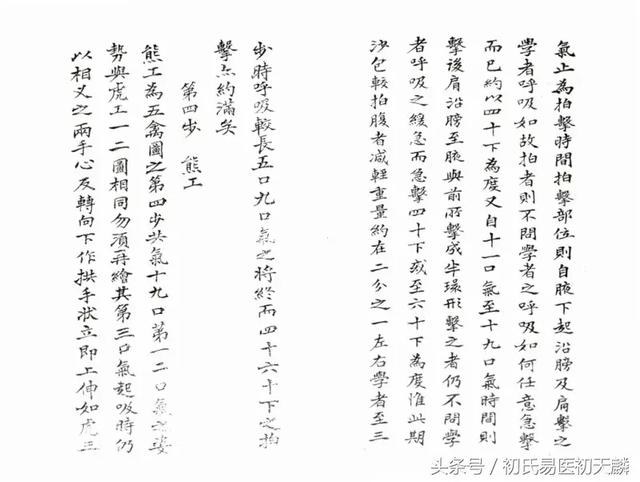 氣止為拍擊時間拍擊部位則自腋下起沿膀及肩擊之
學者呼吸如故拍者則不問學者之呼吸如何任意急擊
而已約以四十下為度又自十一口氣至十九口氣時間則
擊後肩沿膀至腋與前所擊成半環形擊之者仍不問學
者呼吸之緩急而急擊四十下或至六十下為度惟此期
沙包較拍腹者減輕重量約在二分之一左右學者至三
步時呼吸較長五口九口氣之將終而四十六十下之拍
擊亦約滿矣
第四步 熊工
熊工為五禽圖之第四步共氣十九口第一二口氣之姿
勢與虎工一二圖相同勿須再繪其第三口氣起吸時仍
以相叉之兩手心反轉向下作拱手狀立即上伸如虎三
头条号/初氏易医初天麟